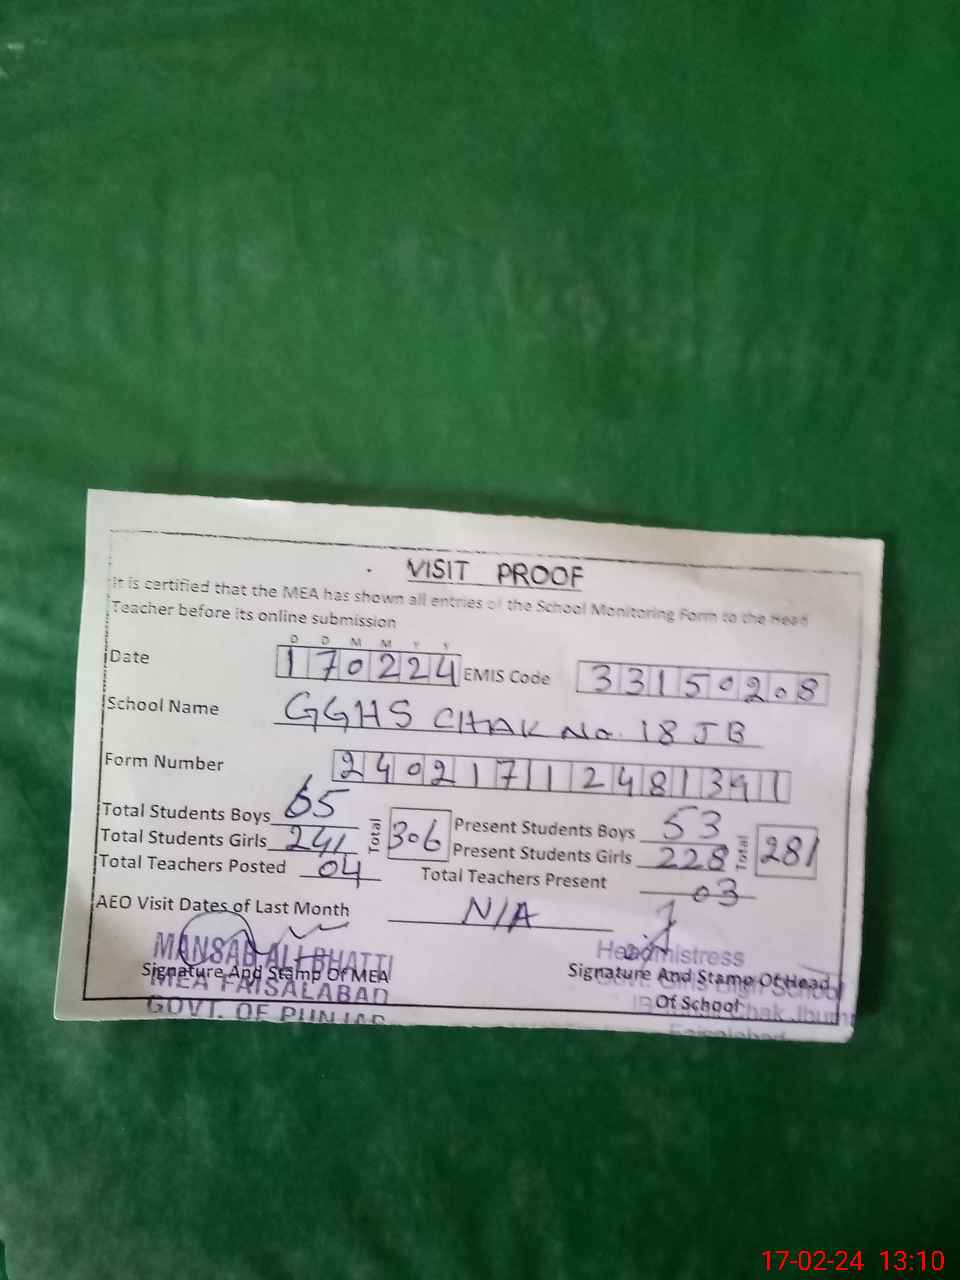 VISIT PROOF
It is certified that the MEA has shown all entries of the School Monitoring Form to the Head
Teacher before its online submission
D D M M Y Y
Date 170224 EMIS Code 33150208
School Name GGHS CHAK No. 18 JB
Form Number 24021711248139 1
Total Students Boys 65 Present Students Boys 53
Total Students Girls 241 Total 306 Present Students Girls 228 Total 281
Total Teachers Posted 04 Total Teachers Present 03
AEO Visit Dates of Last Month N/A
MANSAB ALI BHATTI Headmistress
Signature And Stamp Of MEA Signature And Stamp Of Head
MEA FAISALABAD Govt. Girls High School
Of School
GOVT. OF PUNJAB Chak Jhumra
Faisalabad
17-02-24 13:10